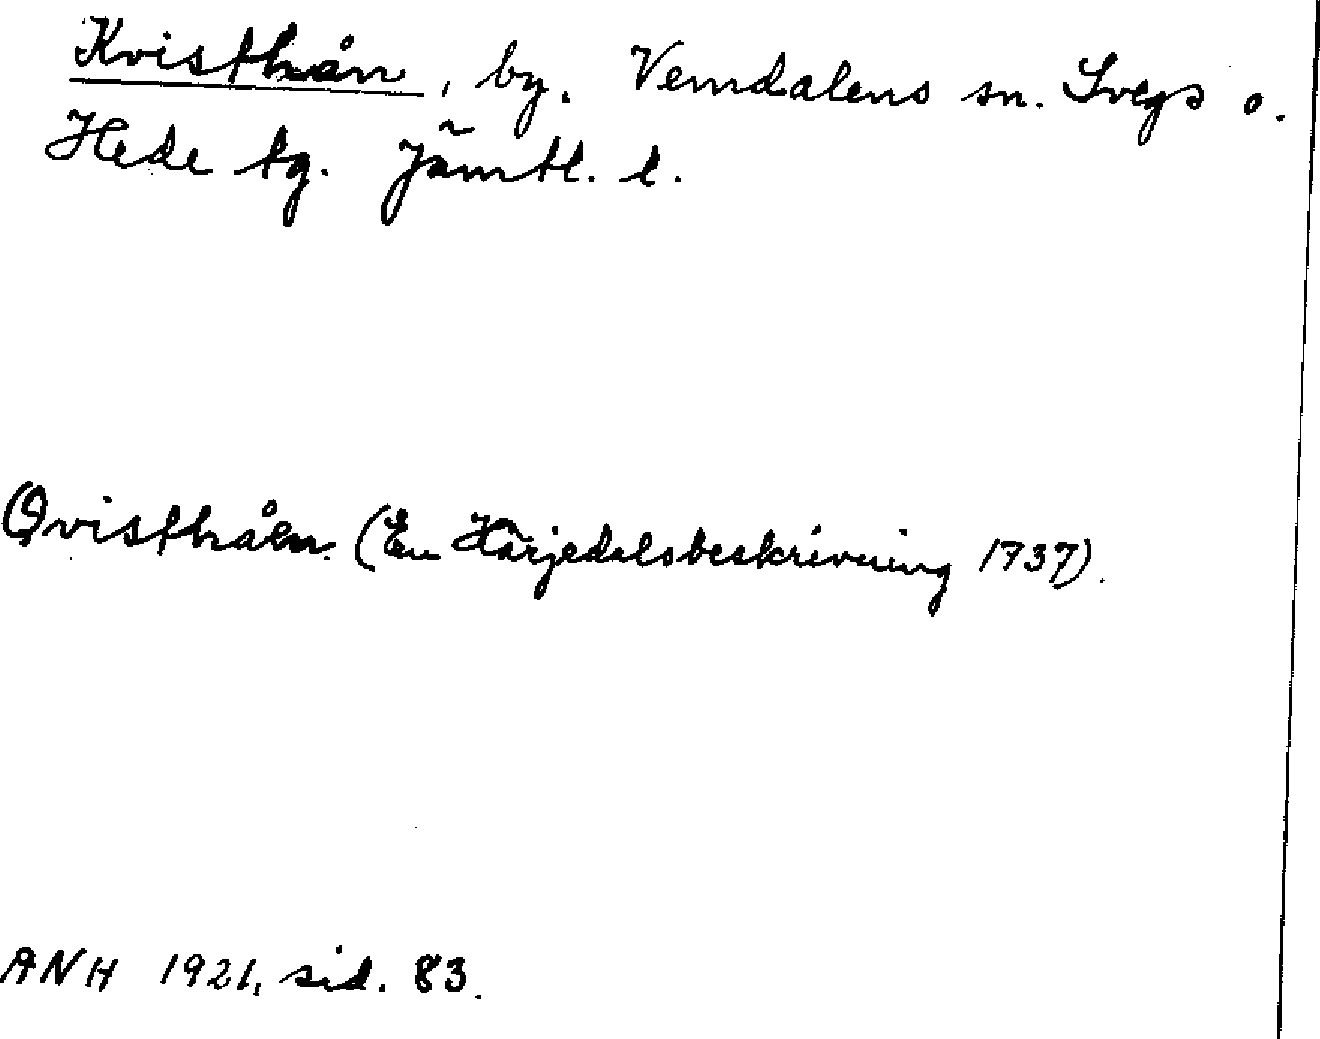 Kvisthån, by. Vemdalens sn. Svegs o.
Hede tg. Jämtl. l.
Qvisthåen. (En Härjedalsbeskrivning 1737).
ANH 1921, sid. 83.